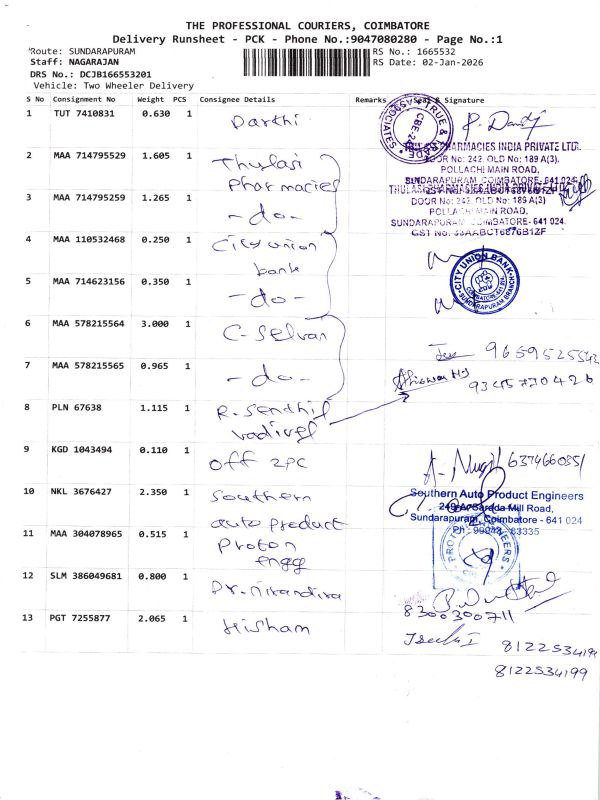 THE PROFESSIONAL COURIERS, COIMBATORE
Delivery Runsheet - PCK - Phone No.:9047080280 - Page No.:1
Route: SUNDARAPURAM
RS No.: 1665532
Staff: NAGARAJAN
RS Date: 02-Jan-2026
DRS No.: DCJB166553201
Vehicle: Two Wheeler Delivery
S No Consignment No Weight PCS Consignee Details Remarks Seal & Signature
1 TUT 7410831 0.630 1 Darthi
2 MAA 714795529 1.605 1 Thulasi
Pharmacies
THULASI PHARMACIES INDIA PRIVATE LTD.
DOOR No: 242, OLD No: 189 A(3),
POLLACHI MAIN ROAD,
SUNDARAPURAM, COIMBATORE-641 024
3 MAA 714795259 1.265 1 -do-
THULASI PHARMACIES INDIA PRIVATE LTD.
DOOR No: 242, OLD No: 189 A(3)
POLLACHI MAIN ROAD,
SUNDARAPURAM, COIMBATORE- 641 024.
GST No: 33AABCT6876B1ZF
4 MAA 110532468 0.250 1 City union
bank
CITY UNION BANK
SUNDARAPURAM BRANCH
5 MAA 714623156 0.350 1 -do-
6 MAA 578215564 3.000 1 C-Selvan
7 MAA 578215565 0.965 1 -do-
8 PLN 67638 1.115 1 R.Senthil
vadivel
9 KGD 1043494 0.110 1 off 2pc
10 NKL 3676427 2.350 1 Southern
auto product
Southern Auto Product Engineers
Sundarapuram, Coimbatore - 641 024
11 MAA 304078965 0.515 1 Proton
engg
PROTON ENGINEERS
12 SLM 386049681 0.800 1 Dr.Nirandira
8300300711
13 PGT 7255877 2.065 1 Hisham
8122534199
8122534199